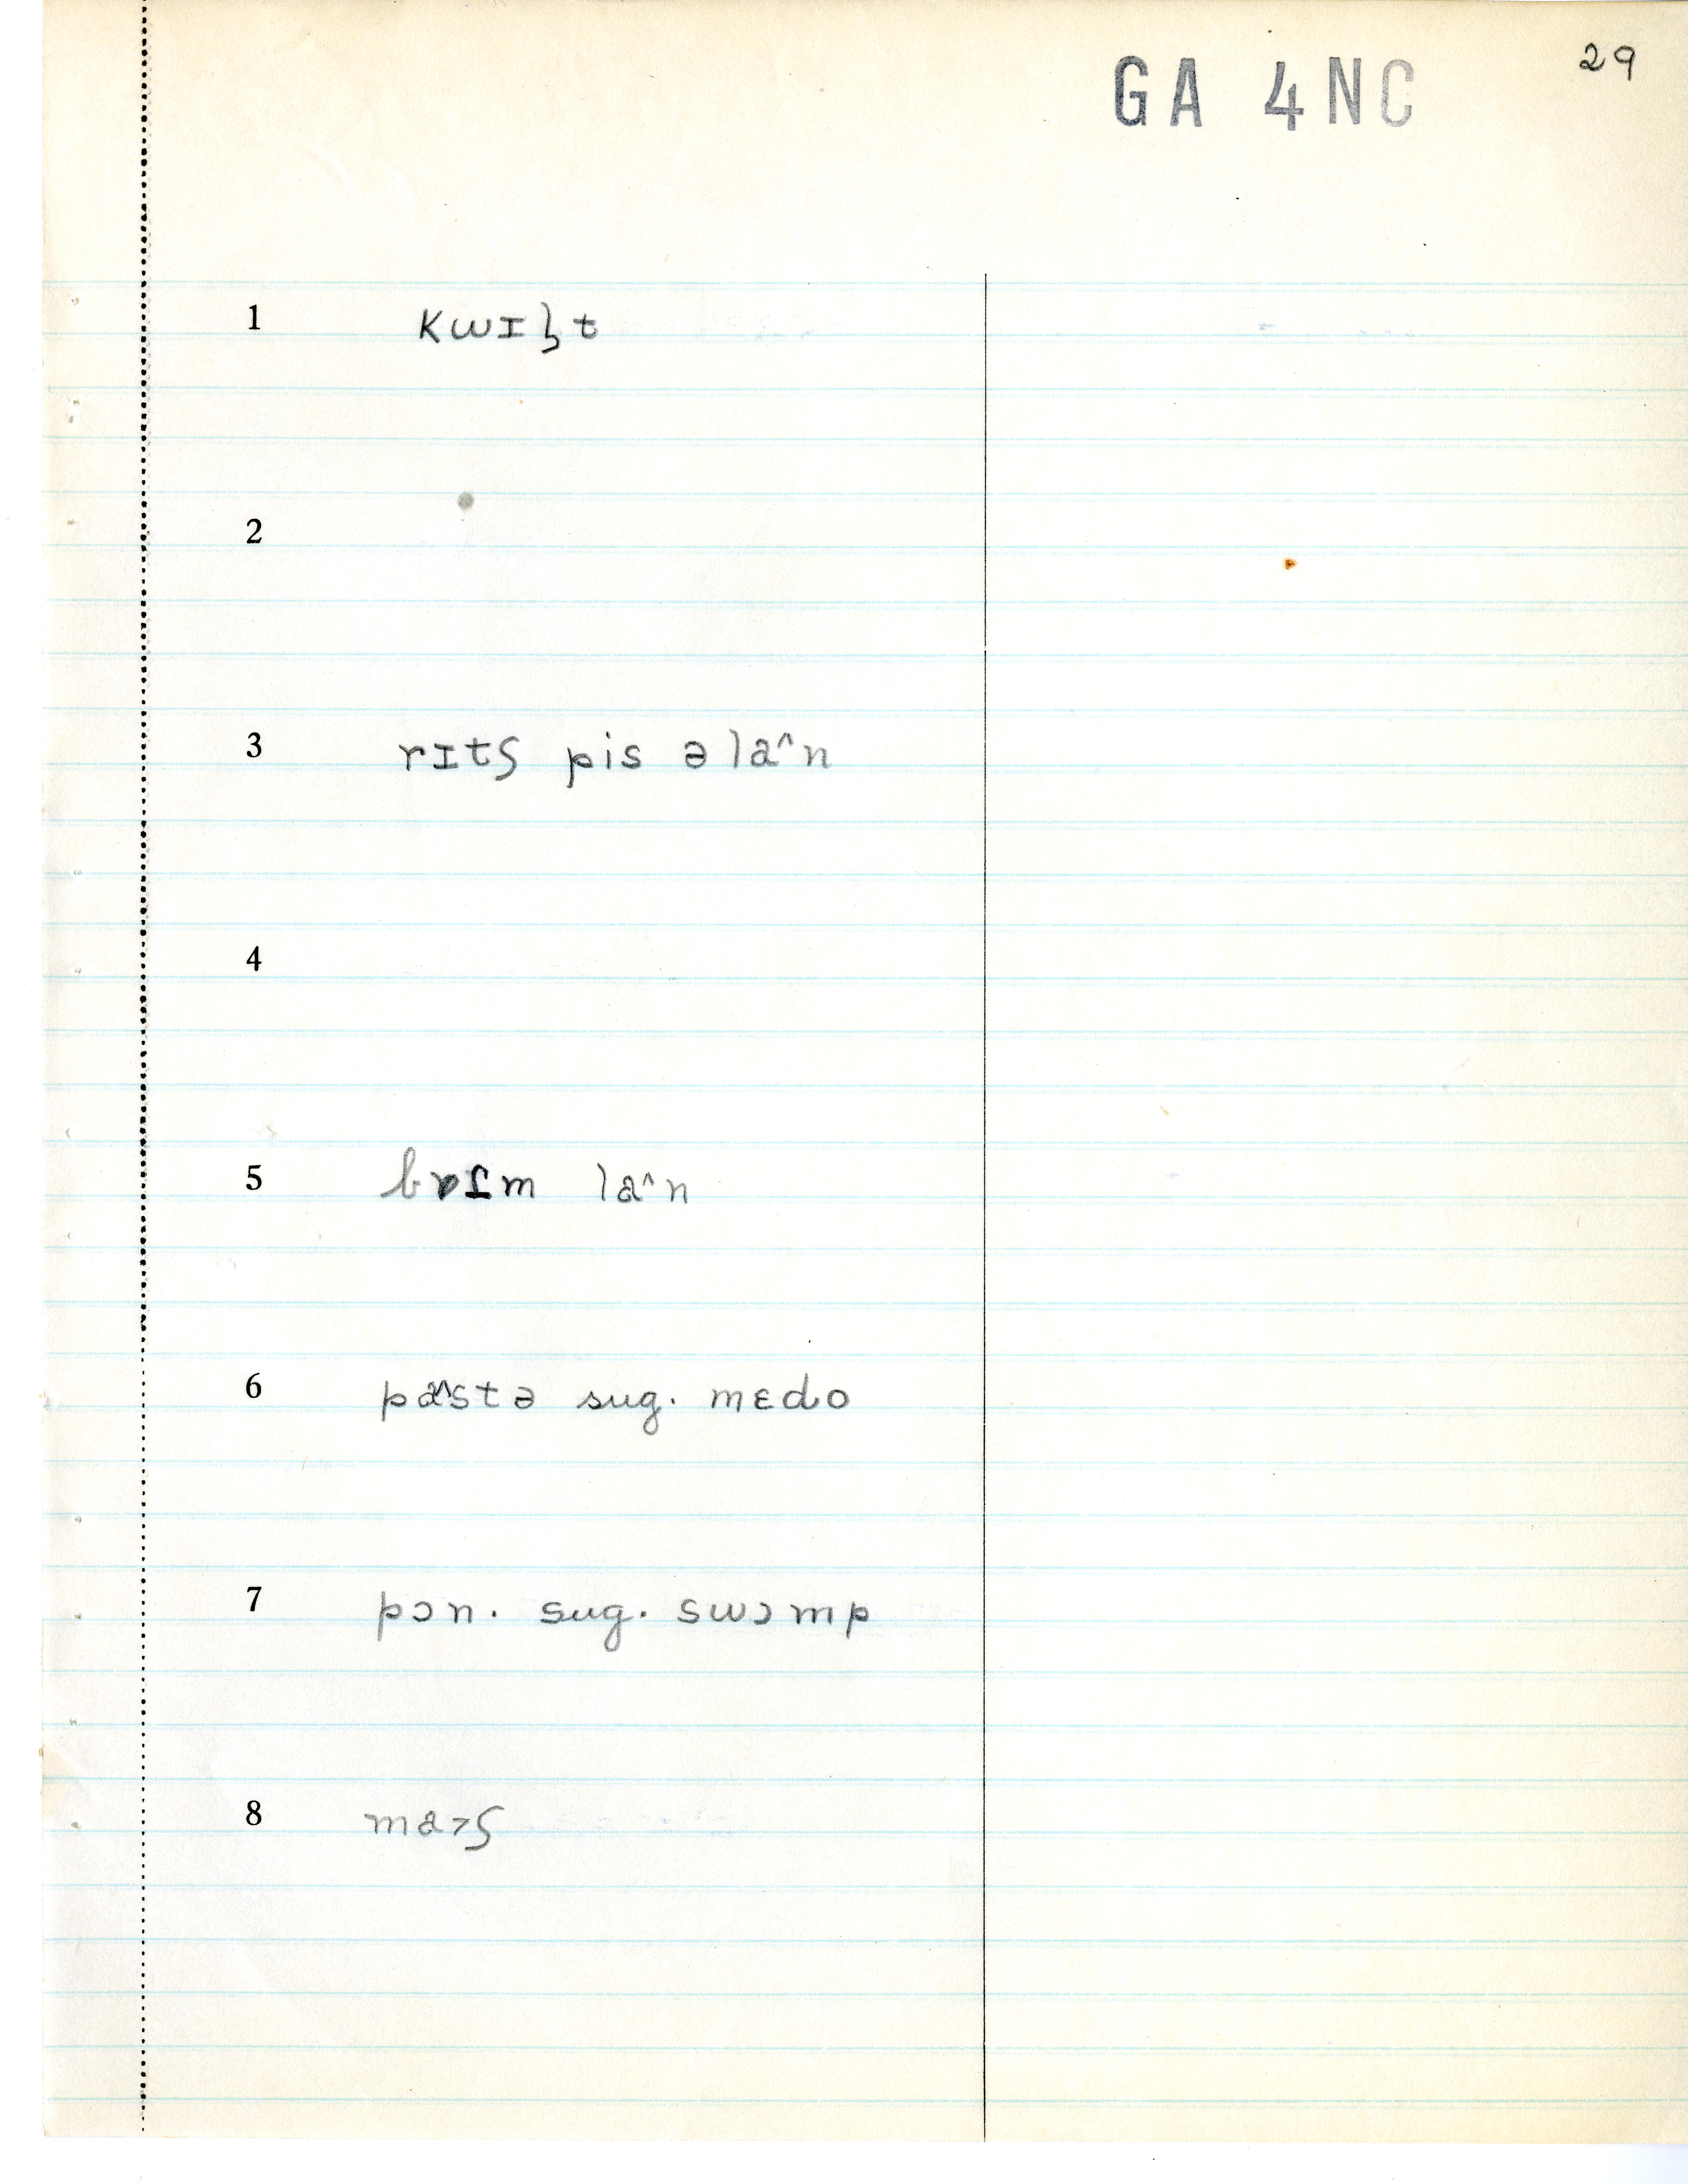 29
GA 4NC
1 kwɪɫt
2
3 rɪtʃ pis ə la^n
4
5 la^n
6 pa^stə sug. mɛdo
7 pɔn. sug. swɔmp
8 maɚʃ